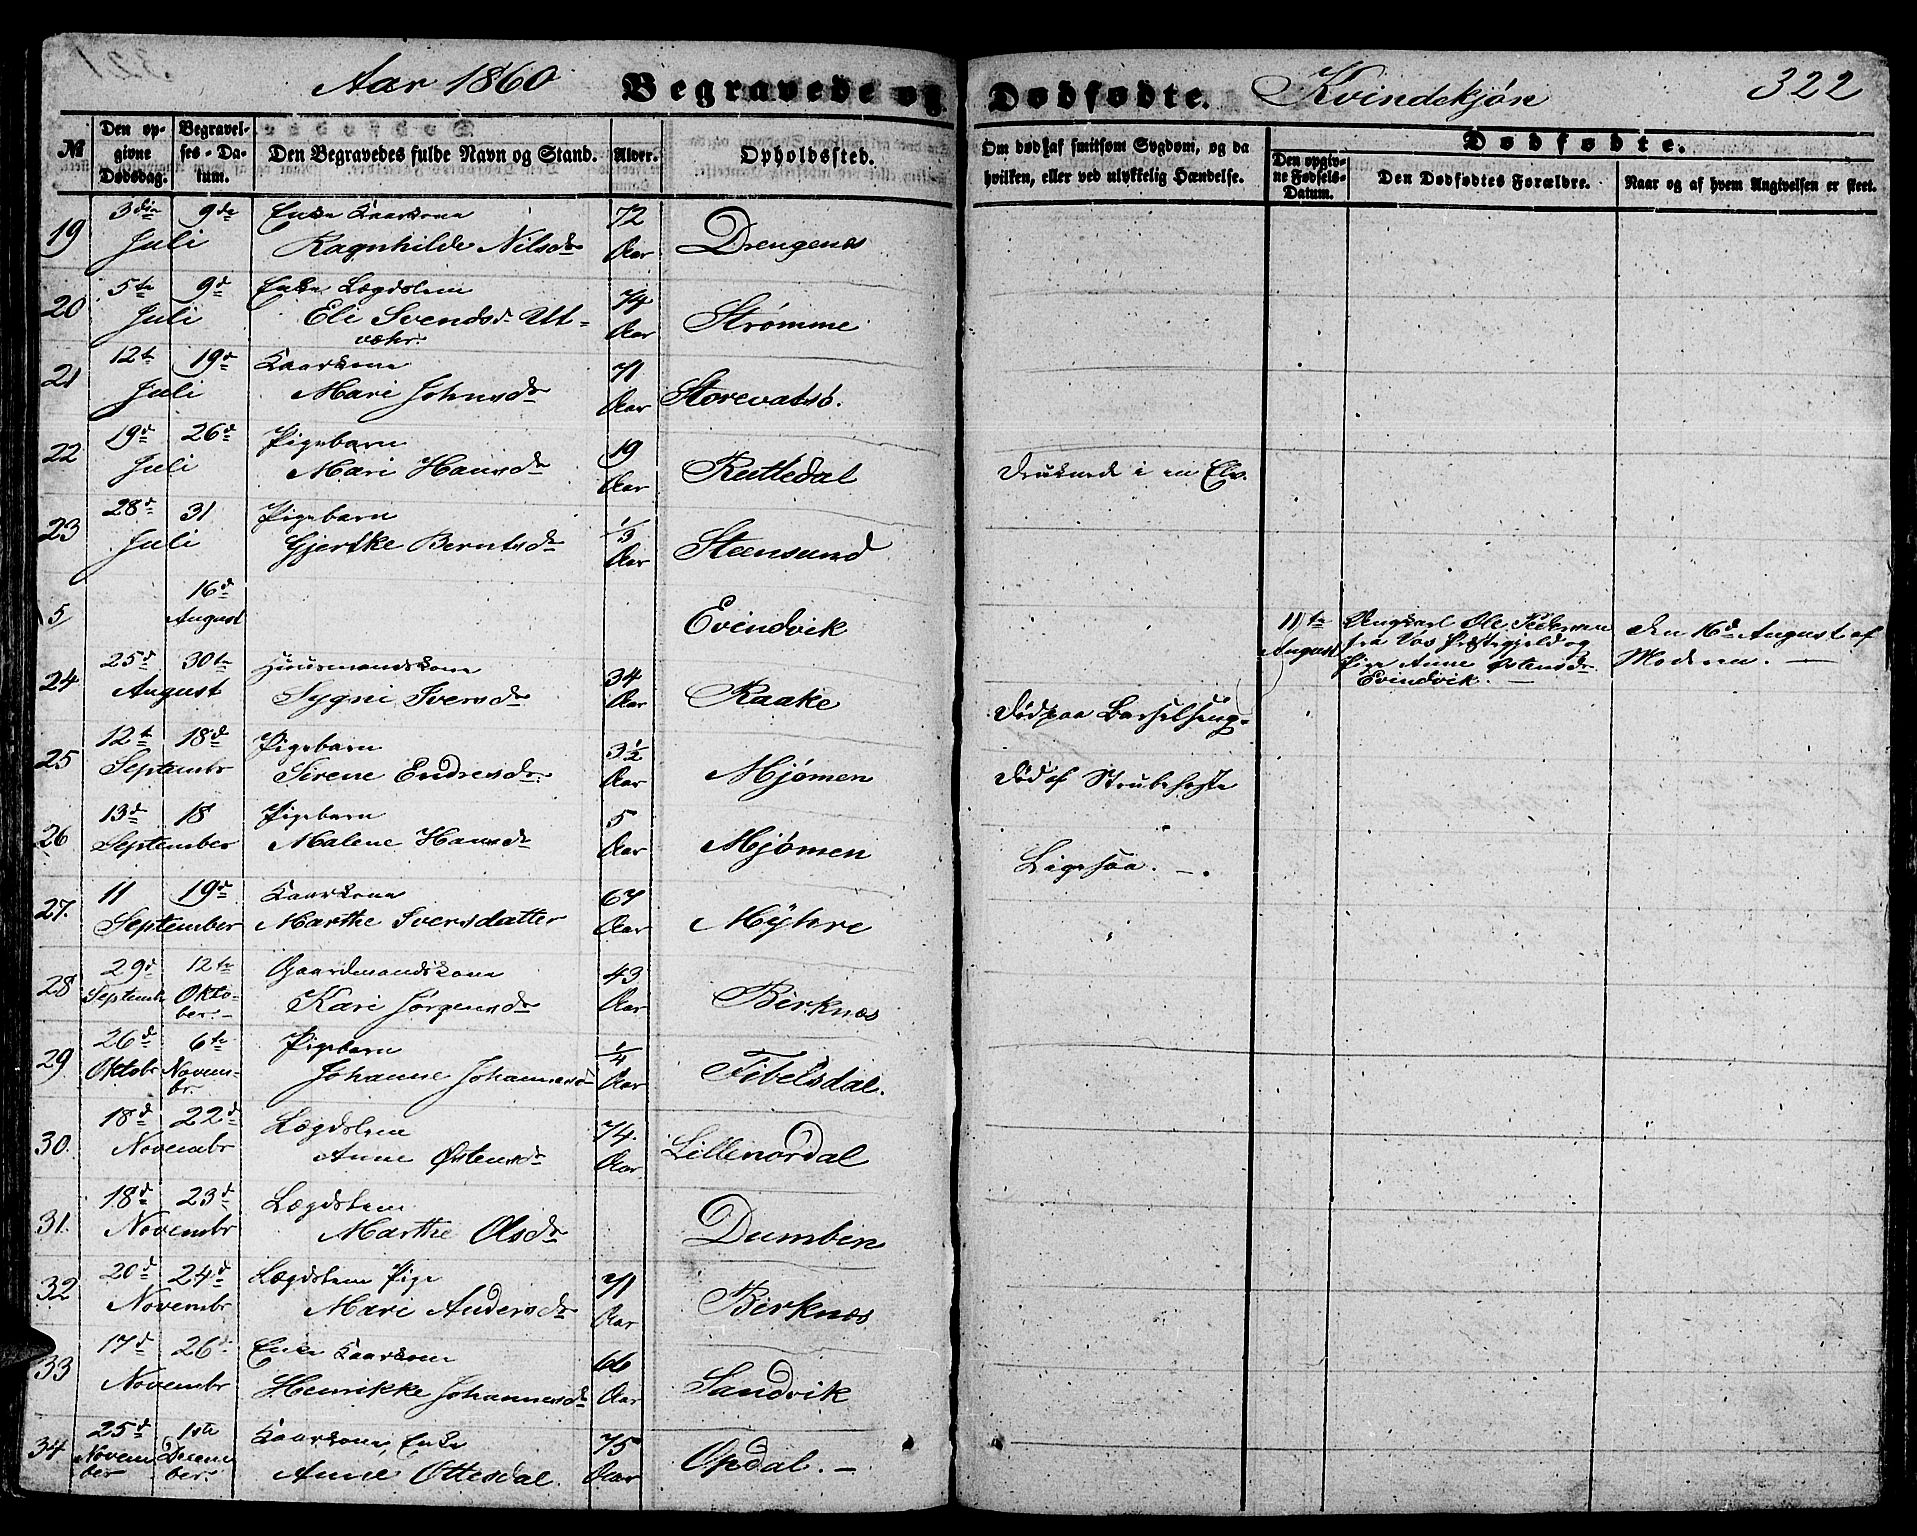 Aar 1860 Begravede og Dødfødte. Kvindekjøn 322
№ Den opgivne Dødsdag. Begravelses-Datum. Den Begravedes fulde Navn og Stand. Alder. Opholdssted. Om død af smitsom Sygdom, og da hvilken, eller ved ulykkelig Hændelse. Dødfødte.
Den opgivne Fødsels-Datum. Den Dødfødtes Forældre. Naar og af hvem Angivelsen er skeet.
19 3die Juli 9de Enke Kaarkone 72
Ragnhilde Nilsdr Aar Drengenes
20 5te Juli 9d Enke Lægdslem 74
Eli Svendsdr Ut- Aar Strømme
væhr.
21 12te Juli 19d Kaarkone 71
Mari Johnsdr Aar Storevatsø.
22 19d Juli 26d Pigebarn 19
Mari Hansdr Aar Rutledal Druknede i en Elv.
23 28d Juli 31 Pigebarn 1/3
Gjertke Berntsdr Aar Steensund
5 16d August Evindvik 11te August Ungkarl Ole Pedersen
fra Vos Præstegjeld og
Pige Anne Østensdr
Evindvik. —
Den 16d August af
Moderen. —
24 25d August 30te Huusmandskone 34
Sygni Iversdr Aar Raake Død paa Barselseng.
25 12t Septembr 18d Pigebarn 3½
Sirene Endresdr. Aar Mjømen Død af Strubehoste
26 13d September 18 Pigebarn 5
Malene Hansdr Aar Mjømen Ligesaa. —.
27. 11 September 19d Kaarkone 67
Marthe Iversdatter Aar Mÿhre
28 29d Septembr 12te Oktober. — Gaardmandskone 43
Kari Jørgensdr Aar Birknæs
29 26d Oktobr 6te Novembr. Pigebarn 1/4
Johanne Johannesd Aar Fibelsdal.
30. 18d Novembr 22d Lægdslem 74.
Anne Østensdr Aar Lillenordal
31. 18d Novembr 23d Lægdslem
Marthe Olsdr Dumbin
32 20d Novembr 24d Lægdslem Pige 71
Mari Andersdr Aar Birknæs
33 17d Novembr 26d Enke Kaarkone 66
Henrikke Johannesdr Aar Sandvik
34 25d November 1ste December. Kaarkone, Enke 75
Anne Ottesdal. Aar Opdal. —